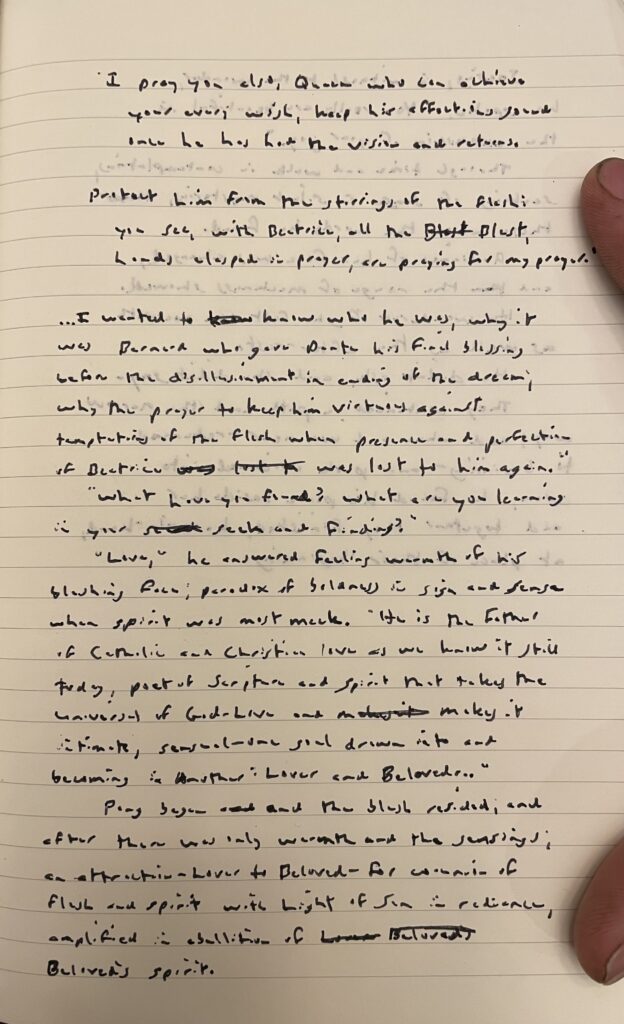 "I pray you also, Queen who can achieve
your every wish, keep his affections sound
once he has had the vision and returns.
Protect him from the stirrings of the flesh:
you see, with Beatrice, all the Blest Blest,
hands clasped in prayer, are praying for my prayer."
...I wanted to know know who he was, why it
was Bernard who gave Dante his final blessing
before the disillusionment in ending of the dream;
why the prayer to keep him virtuous against
temptations of the flesh when presence and perfection
of Beatrice was lost to was lost to him again."
"What have you found? What are you learning
in your seek and finding?"
"Love," he answered feeling warmth of his
blushing face; paradox of boldness in sign and sense
when spirit was most meek. "He is the Father
of Catholic and Christian love as we know it still
today, poet of Scripture and spirit that takes the
universal of God-Love and makes it makes it
intimate, sensual-one soul drawn into and
becoming in Another: Lover and Beloved..."
began and and the blush resided; and
after there was only warmth and the sensings;
an attraction-Lover to Beloved-for communion of
flesh and spirit with Light of Sun in radiance,
amplified in ebullition of Lover Beloved's
Beloved's spirit.